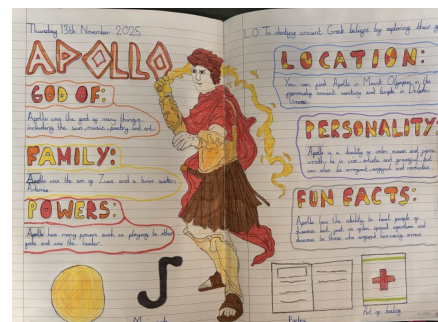 Thursday 13th November 2025
L.O. To identify ancient Greek beliefs by exploring their g
APOLLO
GOD OF:
Apollo was the god of many things,
including the sun, music, poetry and art.
FAMILY:
Apollo was the son of Zeus and a twin sister,
Artemis.
POWERS:
Apollo has many powers such as playing to other
gods and was the healer.
LOCATION:
You can find Apollo in Mount Olympus, in the
ancient sanctuary and temple in Delphi,
Greece.
PERSONALITY:
Apollo is a duality of calm reason and
he is wise, artistic and but
can also be arrogant, and vindictive.
FUN FACTS:
Apollo has the ability to heal people of
diseases but just as often spread injections and
diseases to those who angered
Poetry
Art of healing